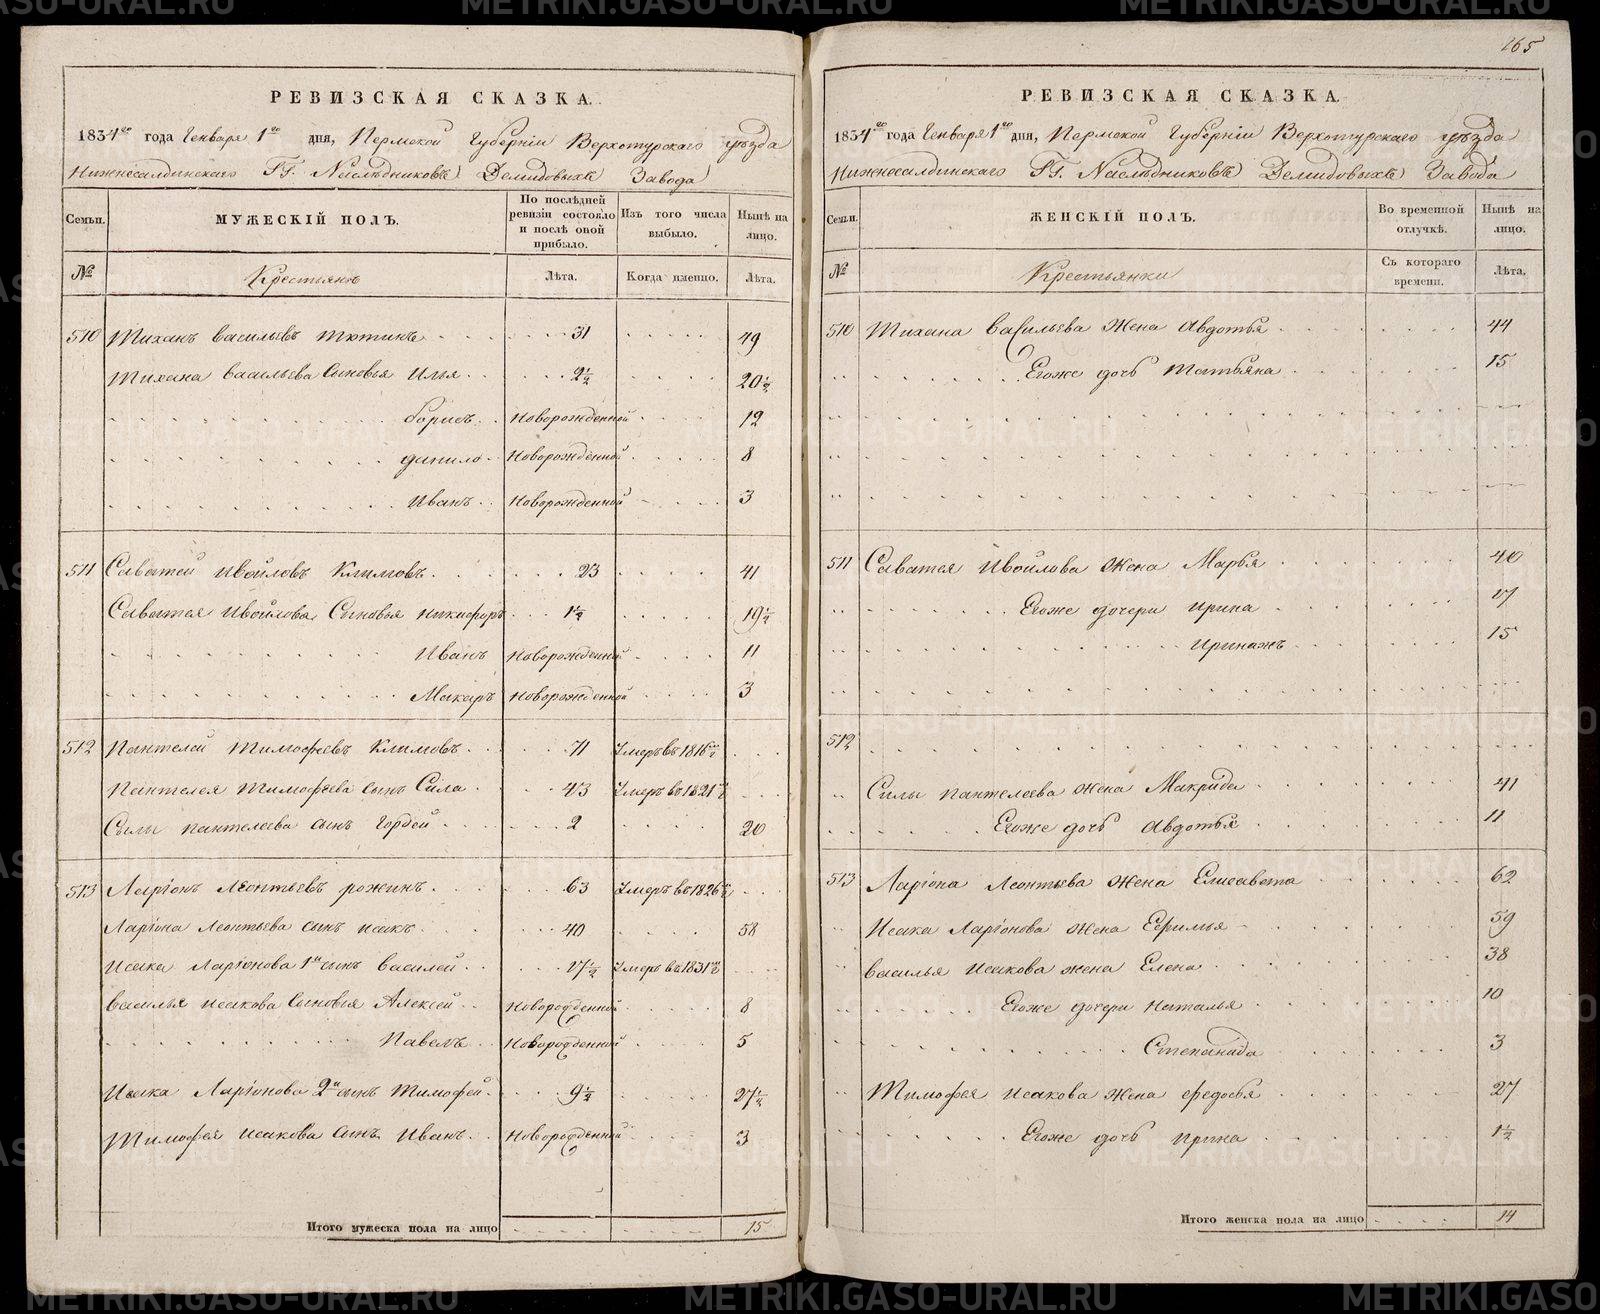 РЕВИЗСКАЯ СКАЗКА.
1834го года Генваря 1го дня, Пермской Губерніи Верхотурскаго уѣзда
Нижнесалдинскаго ГГ. Наслѣдниковъ Демидовыхъ Завода
Семьи. МУЖЕСКІЙ ПОЛЪ. По послѣдней ревизіи состояло и послѣ оной прибыло. Изъ того числа выбыло. Нынѣ на лицо.
№ Крестьянъ Лѣта. Когда именно. Лѣта.
510 Тиханъ Васильевъ Тютинъ 31 49
Тихана Васильева Сыновья Илья 2½ 20½
Борисъ Новорожденной 12
Данило Новорожденной 8
Иванъ Новорожденной 3
511 Саватей Ивойловъ Климовъ 23 41
Саватея Ивойлова Сыновья Никифоръ 1½ 19½
Иванъ Новорожденной 11
Макаръ Новорожденной 3
512 Пантелей Тимофѣевъ Климовъ 71 Умеръ въ 1816мъ
Пантелея Тимофѣева сынъ Сила 43 Умеръ въ 1821мъ
Силы Пантелеева сынъ Гордей 2 20
513 Ларіонъ Леонтьевъ Рожинъ 63 Умеръ въ 1826мъ
Ларіона Леонтьева сынъ Исакъ 40 58
Исака Ларіонова 1й сынъ Василей 17½ Умеръ въ 1831мъ
Василья Исакова Сыновья Алексей Новорожденной 8
Павелъ Новорожденной 5
Исака Ларіонова 2й сынъ Тимофей 9½ 27½
Тимофея Исакова сынъ Иванъ Новорожденной 3
Итого мужеска пола на лицо 15
165
РЕВИЗСКАЯ СКАЗКА.
1834го года Генваря 1го дня, Пермской Губерніи Верхотурскаго уѣзда
Нижнесалдинскаго ГГ. Наслѣдниковъ Демидовыхъ Завода
Семьи. ЖЕНСКІЙ ПОЛЪ. Во временной отлучкѣ. Нынѣ на лицо.
№ Крестьянки Съ котораго времени. Лѣта.
510 Тихана Васильева жена Авдотья 44
Егоже дочь Татьяна 15
511 Саватея Ивойлова жена Марья 40
Егоже дочери Ирина 17
Иринажъ 15
512
Силы Пантелеева жена Макрида 41
Егоже дочь Авдотья 11
513 Ларіона Леонтьева жена Елисавета 62
Исака Ларіонова жена Ефимья 59
Василья Исакова жена Елена 38
Егоже дочери Наталья 10
Степанида 3
Тимофея Исакова жена Федосья 27
Егоже дочь Ирина 1½
Итого женска пола на лицо 14
METRIKI.GASO-URAL.RU